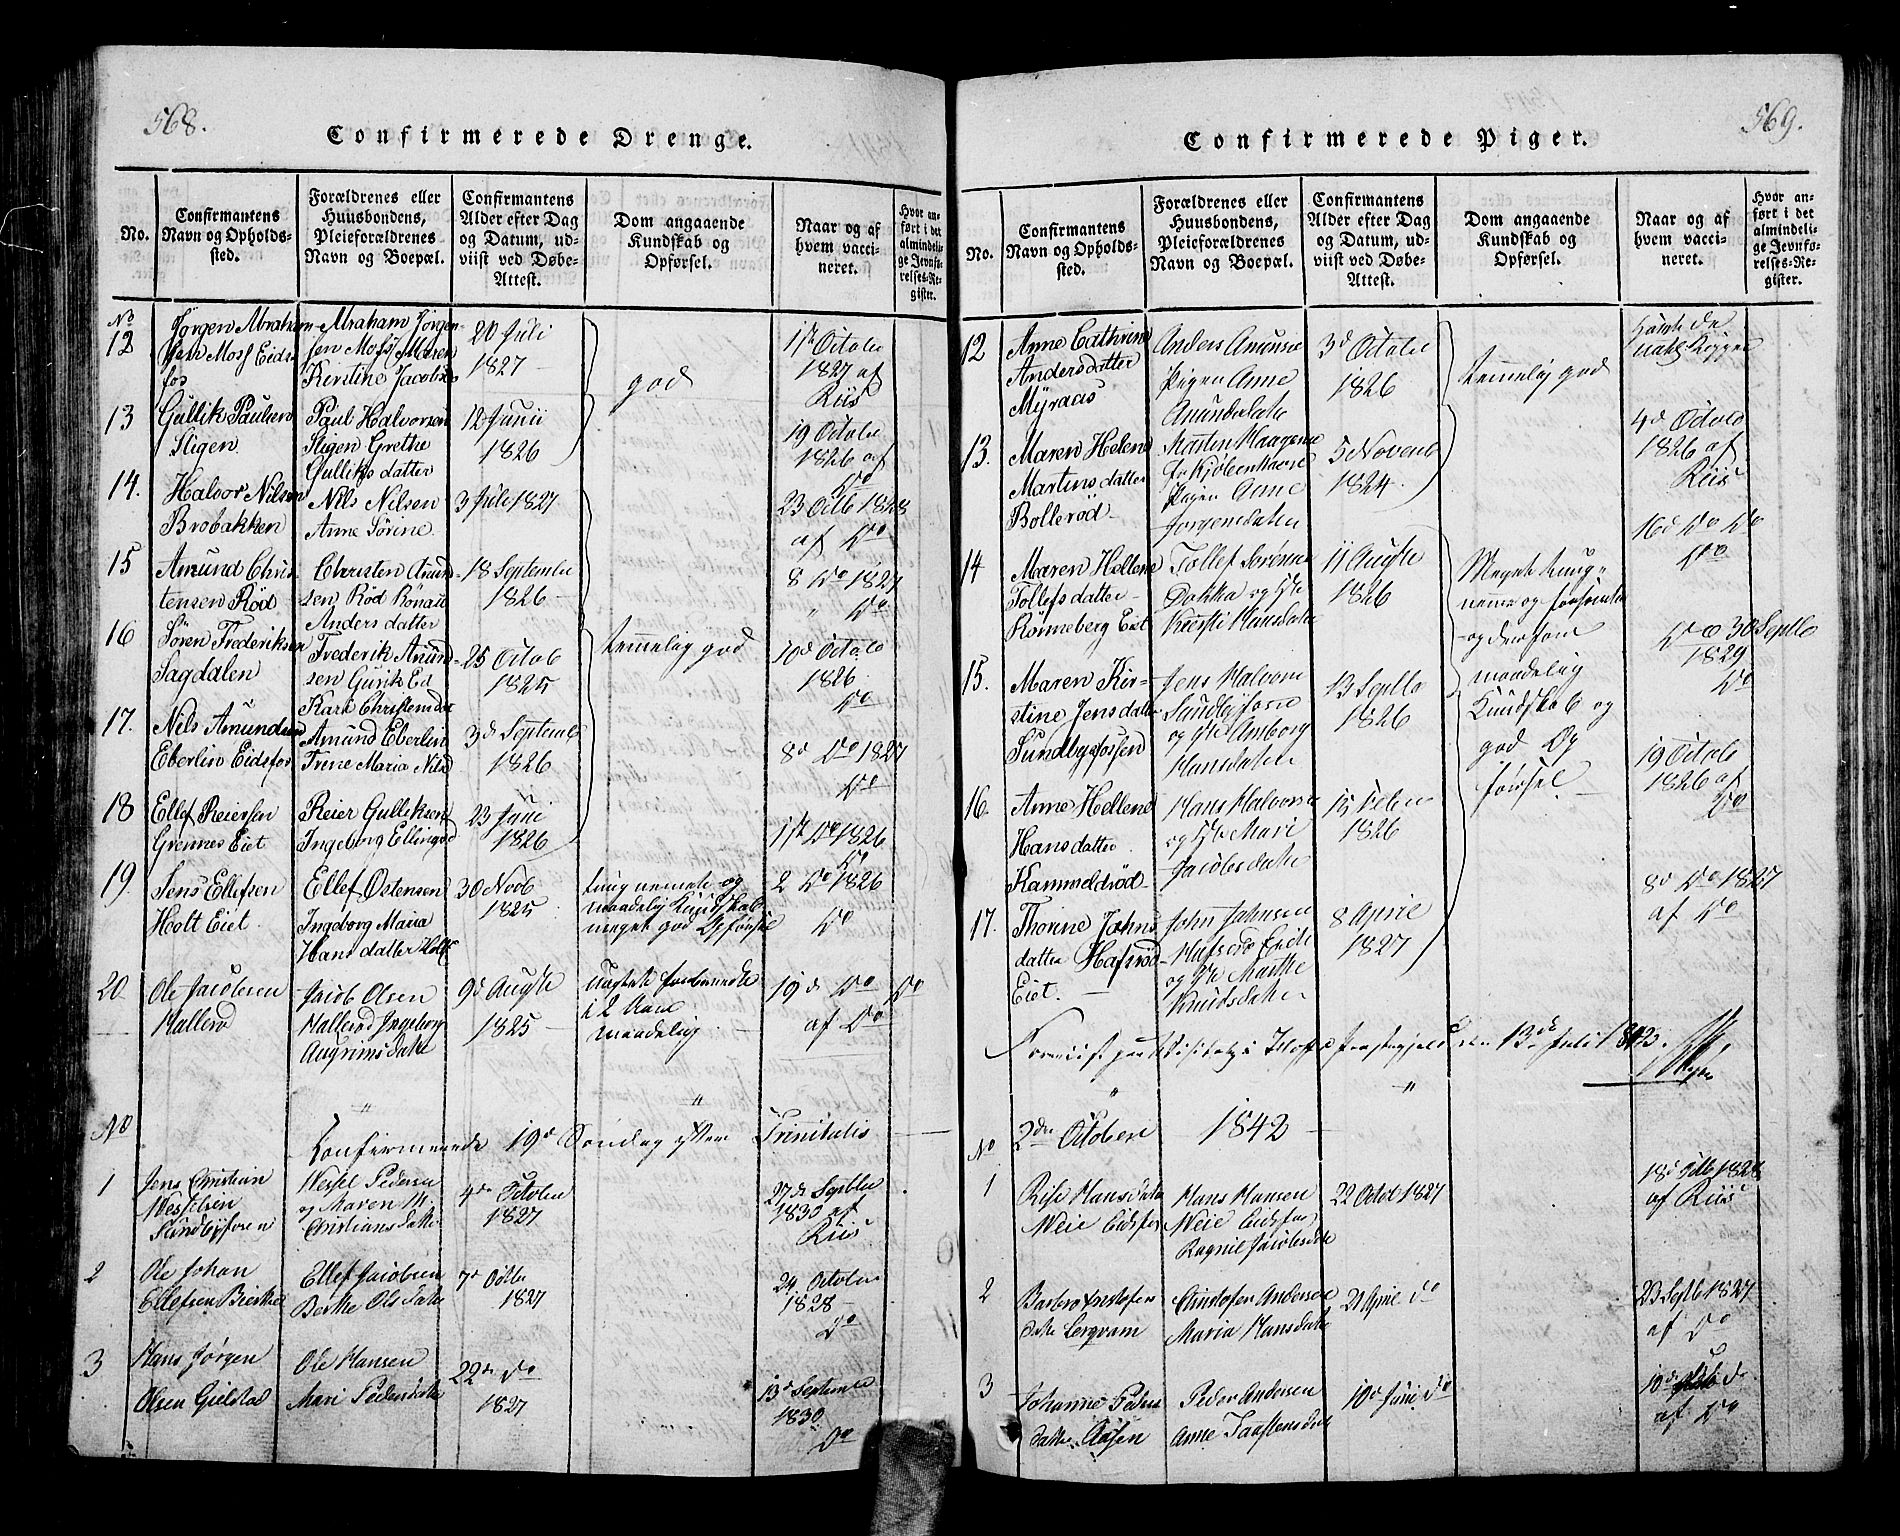 568.
Confirmerede Drenge.
No.
Confirmantens
Navn og Opholds-
sted.
Forældrenes eller
Huusbondens,
Pleieforældrenes
Navn og Boepæl.
Confirmantens
Alder efter Dag
og Datum, ud-
viist ved Døbe-
Attest.
Dom angaaende
Kundskab og
Opførsel.
Naar og af
hvem vacci-
neret.
Hvor an-
ført i det
almindeli-
ge Jevnfø-
relses-Re-
gister.
No
12
Jørgen Abraham-
sen Moss Eids
fos
Abraham Jørgen-
sen Moss Maren
Kirstine Jacobs
20 Juli
1827
god
17de Octobe
1827 af
Riis
13
Gullik Paulsen
Sligen.
Paul Halvorsen
Sligen Grethe
Gulliks datter
12 Junii
1826
19 Octobe
1826 af
Do
14.
Halvor Nilsen
Brobakken
Nils Nilsen
Anne Sørine.
3 Juli 1827
23 Octb 1828
af Do
15
Amund Chris
tensen Rød
Christen Amun
sen Rød
Anders datter
18 Septembe
1826
8 Do 1827
" Do
16
Søren Frederiksen
Sagdalen
Frederik Amund
sen Gurik Ed
Kari Christensdr
25 Octob
1825
temmelig god
10d Octob
1826
Do
17.
Nils Amundsen
Eberlin Eidsfos
Amund Eberlin
Trine Maria Nilsd
3d Septemb
1826
8d Do 1827
Do
18
Ellef Reiersen
Grennes Eiet
Reier Gulliksen
Ingeborg Ellingsd
23 Juni
1826
17de Do 1826
Do
19.
Jens Ellefsen
Holt Eiet.
Ellef Østensen
Ingeborg Maria
Hans datter Holt
30 Novb
1825
tung nemme og
maadelig Kundskab
meget god Opførsel
2 Do 1826
Do
20
Ole Jacobsen
Hallerød
Jacob Olsen
Hallerød Ingeborg
Augrimsdatte
9d Augte
1825
uagtet forberedte
i 2 Aar
maadelig
19d Do Do
af Do
No
Confirmerede 19d Søndag efter Trinitatis
1
Jens Christian
Wesselsen
Sundbyfosen
Wessel Pedersen
og Maren M:
Christiansdatte
4de October
1827
27de Septbr
1830 af
Riis
2
Ole Johan
Ellefsen Bierke
Ellef Jacobsen
Berthe Olsdatte
7d Octbr
1827
24 October
1828
Do
3
Hans Jørgen
Olsen Gielstad
Ole Hansen
Mari Pedersdatte
22de Do
1827
13d Septembe
1830
Do
569.
Confirmerede Piger.
No.
Confirmantens
Navn og Opholds-
sted.
Forældrenes eller
Huusbondens,
Pleieforældrenes
Navn og Boepæl.
Confirmantens
Alder efter Dag
og Datum, ud-
viist ved Døbe-
Attest.
Dom angaaende
Kundskab og
Opførsel.
Naar og af
hvem vacci-
neret.
Hvor an-
ført i det
almindelig-
ge Jevnfø-
relses-Re-
gister.
12
Anne Cathrine
Andersdatter
Myraas
Anders Amunse
Pigen Anne
Amundsdatte
3d Octobe
1826
temmelig god
havde de
natl Kopper
13.
Maren Helene
Martins datter
Bollerød
Morten Haagense
fr Kjøbenhavn
Pigen Anne
Jørgensdatter
5 Novemb
1824
4d Octob
1826 af
Riis
14
Maren Hellene
Tollefs datter
Rønneberg Eiet
Tollef Sørense
Dokka og Ht
Kiersti Hansdatte
11 Augte
1826
Meget tung
nemme og forsømte
og derfor
maadelig
Kundskab og
god Op
førsel
16d Do Do
Do
15.
Maren Kir-
stine Jensdatter
Sundbyfossen
Jens Halvors
Sundbyfosse
og Ht Amborg
Hansdatter
13 Septb
1826
Do 30 Septb
1829
Do
16.
Anne Hellene
Hansdatter
Kammeldrød
Hans Halvorse
og Ht Mari
Jacobsdatte
15 Febr
1826
19 Octob
1826 af
Do
17.
Thorine Johns
datter Hafsrød
Eiet.
John Johnsen
Hafsrød Eiet
og Ht Marthe
Knudsdatter
8 April
1827
8d Do 1827
af Do
Foreviist paa Visitats i Hofs Præstegjeld den 13de Juli 1843.
No
2den October 1842
1
Rise Hansdatte
Weie Eidsfos
Hans Hansen
Weie Eidsfos
Ragnil Jacobsdatte
22 Octob 1827
18d Octb 1828
af Riis
2
Barbro Cristofers
datte Lerqvam
Christofer Anderse
Maria Hansdatte
21 April Do
23 Septb 1827
af Do
3
Johanne Peders
datte Aasen
Peder Andersen
Anne Taastensdatt
10d Juni Do
10d Do
af Do